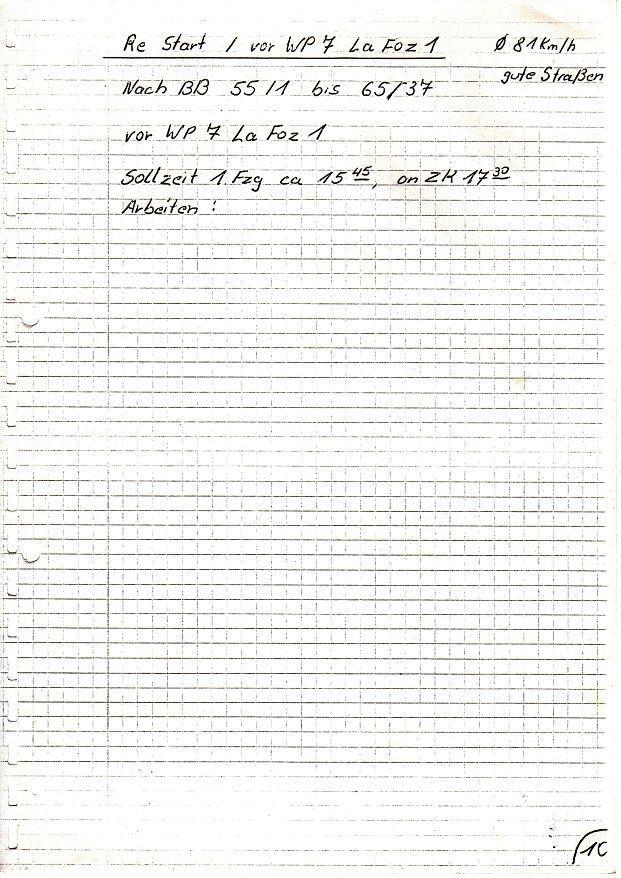 Re Start / vor WP 7 La Foz 1
Ø 81 Km/h
gute Straßen
Nach BB 55/1 bis 65/37
vor WP 7 La Foz 1
Sollzeit 1. Fzg ca 15 45, an ZK 17 30
Arbeiten :
10